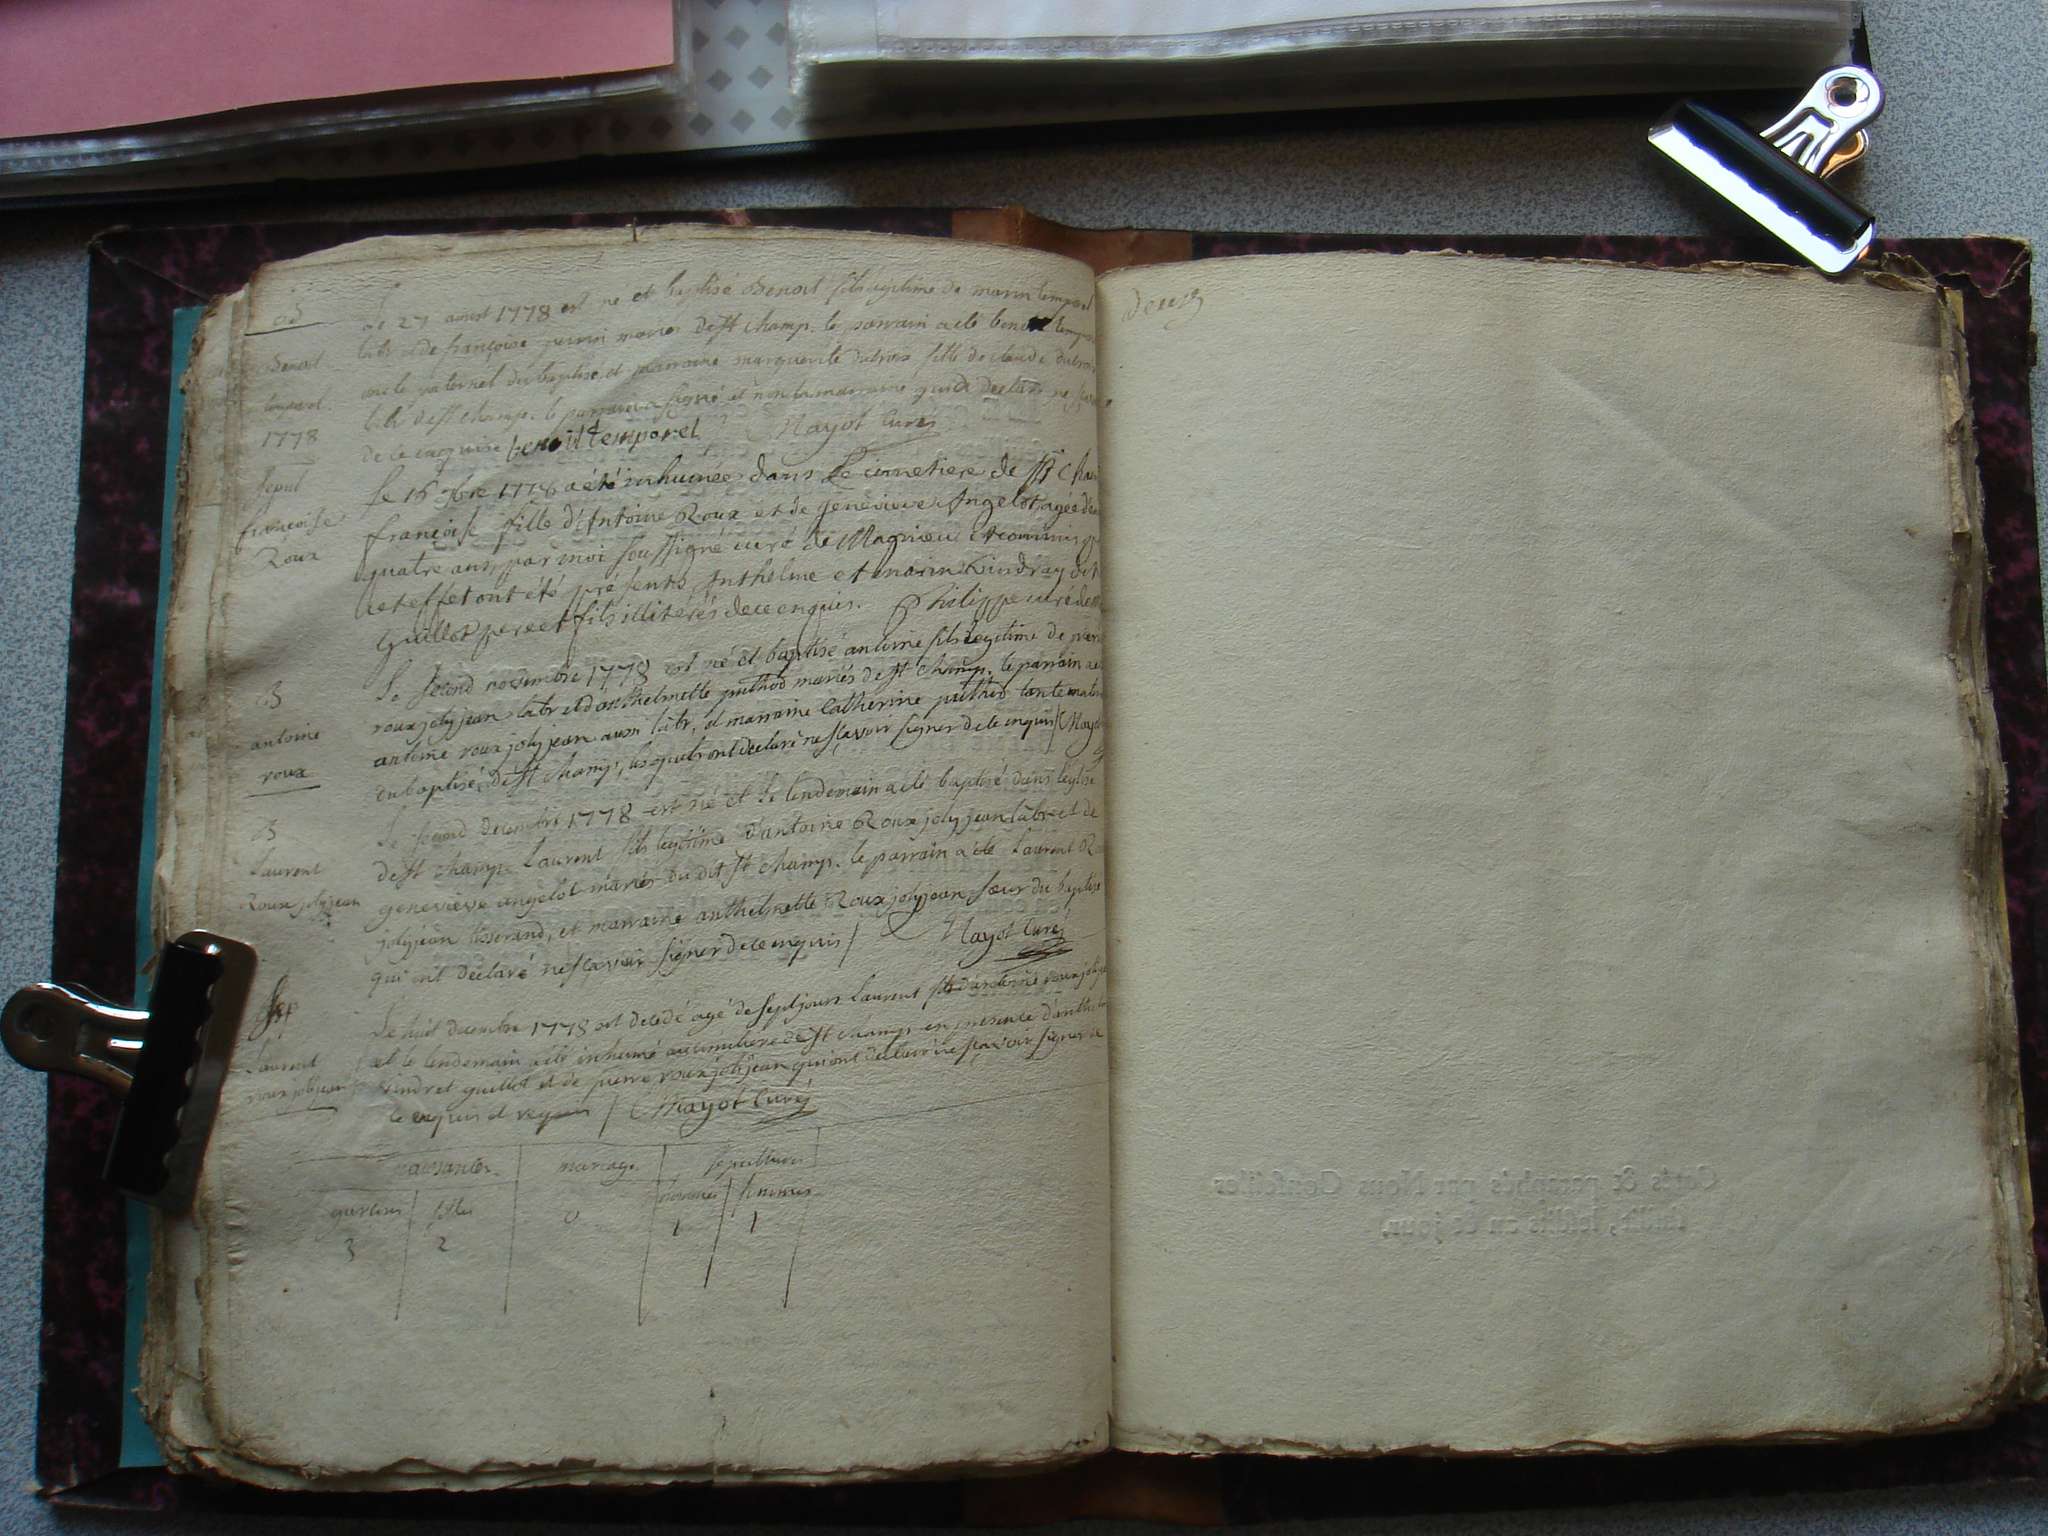 B
Benoit
temporel
1778
Le 27 aoust 1778 est né et baptisé Benoit fils legitime de marin temporel
labr et de françoise perrin mariés de st champ. le parrain a eté benoit
oncle paternel du baptisé, et marraine marguerite dubois fille de claude
labr de st champ. le parrain a signé, et non la marraine qui a declaré ne
de ce enquise benoit temporel Mayot Curé
sepul
françoise
Roux
Le 16 9bre 1778 a été inhumée dans le cimetiere de st Cham
françoise fille d'Antoine Roux et de genevieve Angelot, agée de
quatre ans, par moi soussigné curé de Magnieu et commis
cet effet ont été présents, Anthelme et marin dit
Guillot pere et fils illiterés de ce enquis. Philippe curé de
B
antoine
roux
Le second novembre 1778 est né et baptisé antoine fils legitime de
roux jolyjean labr et d'anthelmette puthod mariés de st champ. le parrain a
antoine roux jolyjean aussi labr, et marraine Catherine puthod tante
du baptisé, de st champ, lesquels ont declaré ne sçavoir signer de ce enquis / Mayot
B
Laurent
Roux jolyjean
Le second decembre 1778 est né et le lendemain a eté baptisé dans l'eglise
de st champ Laurent fils legitime d'antoine Roux jolyjean labr et de
genevieve angelot mariés du dit st champ. le parrain a eté Laurent
jolyjean tisserand, et marraine anthelmette Roux jolyjean soeur du baptisé
qui ont declaré ne sçavoir signer de ce enquis / Mayot Curé
Sep
Laurent
roux jolijean
Le huit decembre 1778 est decedé agé de sept jours Laurent fils d'antoine roux
et le lendemain a eté inhumé au cimetiere de st champ en presence d'anthelme
vindret guillot et de pierre roux jolijean qui ont declaré ne sçavoir signer de
ce enquis et requis / Mayot Curé
naissances mariage sepultures
garcons filles 0 hommes femmes
3 2 1 1
deux
Cotés & paraphés par Nous Conseiller